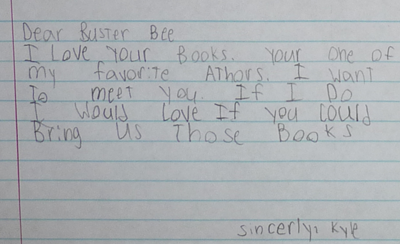 Dear Buster Bee
I Love Your Books. Your one of
my favorite Athors. I want
To meet you. If I Do
I Would Love If you could
Bring Us Those Books
sincerly, Kyle